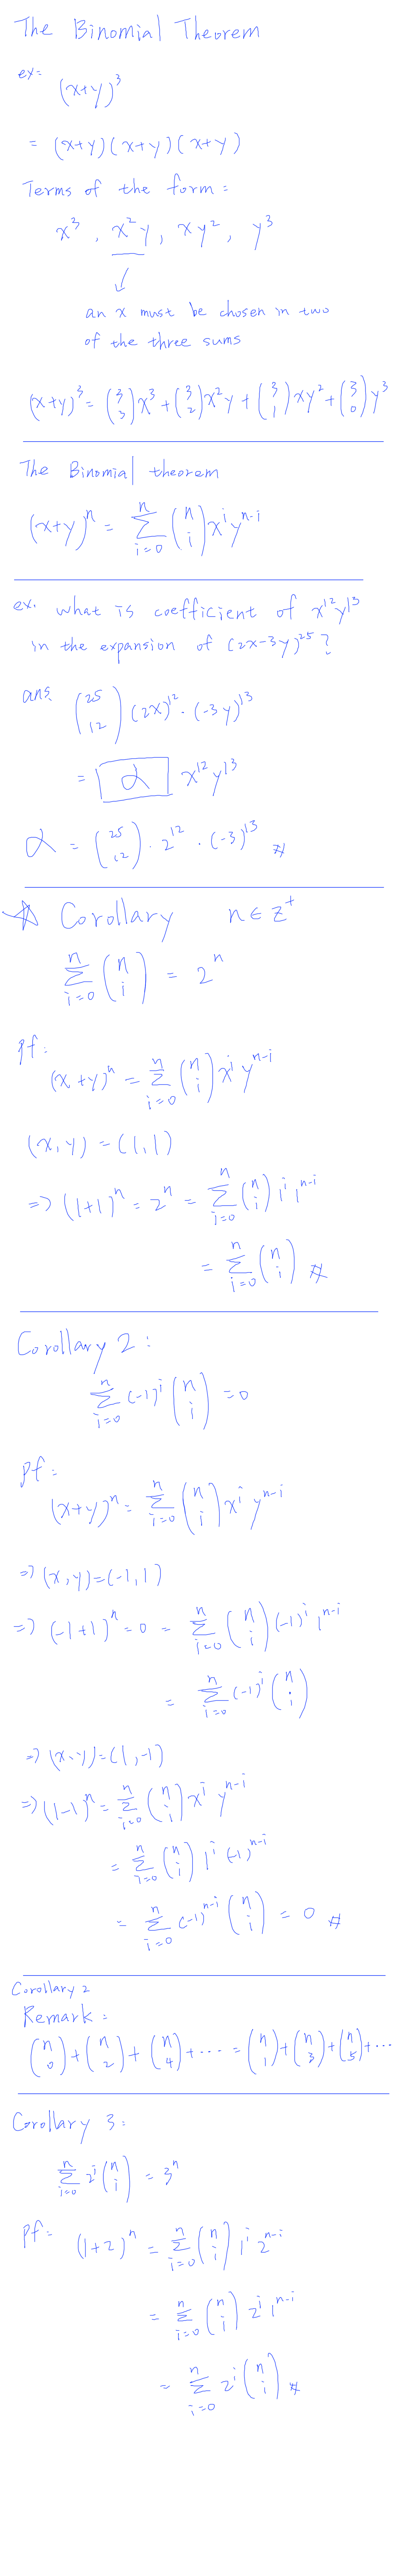 The Binomial Theorem
ex: (x+y)³
= (x+y)(x+y)(x+y)
Terms of the form:
x³, x²y, xy², y³
an x must be chosen in two
of the three sums
(x+y)³ = (3 3)x³ + (3 2)x²y + (3 1)xy² + (3 0)y³
The Binomial theorem
(x+y)^n = Σ_{i=0}^{n} (n i) x^i y^{n-i}
ex. what is coefficient of x^12 y^13
in the expansion of (2x-3y)^25?
ans: (25 12) (2x)^12 · (-3y)^13
= α x^12 y^13
α = (25 12) · 2^12 · (-3)^13 #
☆ Corollary n∈z⁺
Σ_{i=0}^{n} (n i) = 2^n
pf:
(x+y)^n = Σ_{i=0}^{n} (n i) x^i y^{n-i}
(x,y) = (1,1)
=> (1+1)^n = 2^n = Σ_{i=0}^{n} (n i) 1^i 1^{n-i}
= Σ_{i=0}^{n} (n i) #
Corollary 2:
Σ_{i=0}^{n} (-1)^i (n i) = 0
pf:
(x+y)^n = Σ_{i=0}^{n} (n i) x^i y^{n-i}
=> (x,y) = (-1,1)
=> (-1+1)^n = 0 = Σ_{i=0}^{n} (n i) (-1)^i 1^{n-i}
= Σ_{i=0}^{n} (-1)^i (n i)
=> (x,y) = (1,-1)
=> (1-1)^n = Σ_{i=0}^{n} (n i) x^i y^{n-i}
= Σ_{i=0}^{n} (n i) 1^i (-1)^{n-i}
= Σ_{i=0}^{n} (-1)^{n-i} (n i) = 0 #
Corollary 2
Remark:
(n 0) + (n 2) + (n 4) + ... = (n 1) + (n 3) + (n 5) + ...
Corollary 3:
Σ_{i=0}^{n} 2^i (n i) = 3^n
pf: (1+2)^n = Σ_{i=0}^{n} (n i) 1^i 2^{n-i}
= Σ_{i=0}^{n} (n i) 2^i 1^{n-i}
= Σ_{i=0}^{n} 2^i (n i) #